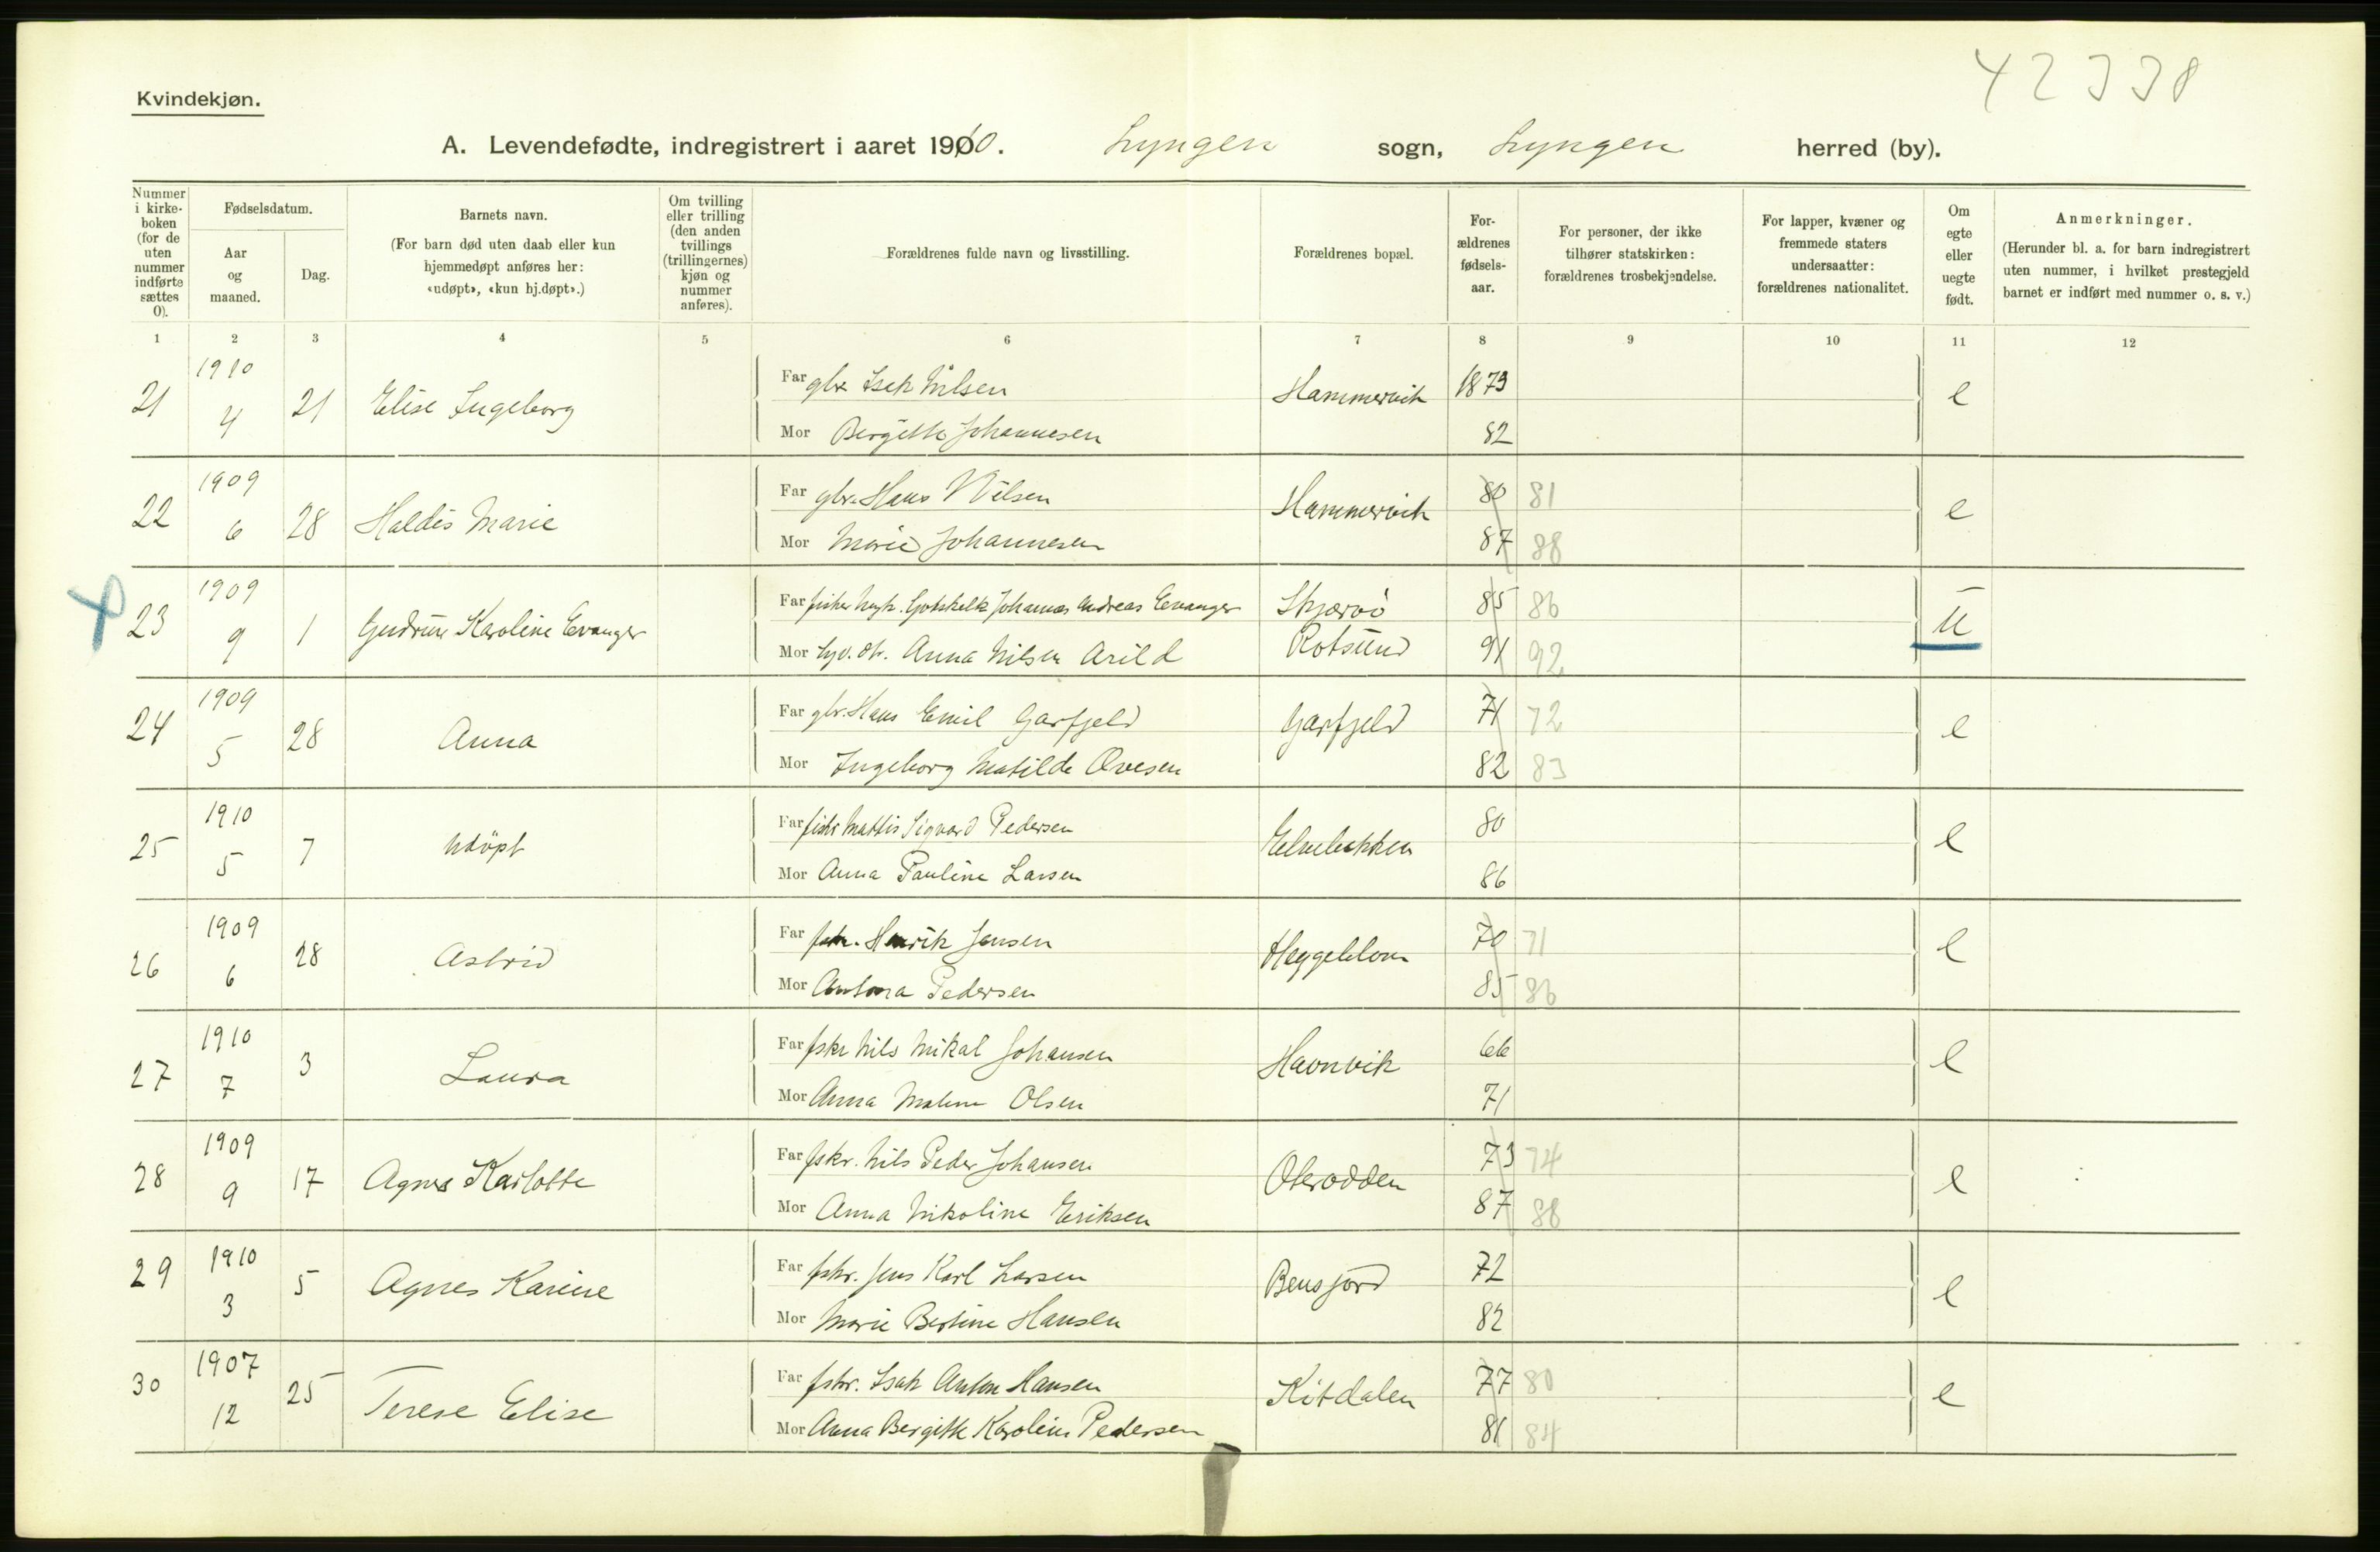 42338
Kvindekjøn.
A. Levendefødte, indregistrert i aaret 1910. Lyngen sogn, Lyngen herred (by).
Nummer i kirke-boken (for de uten nummer indførte sættes 0).
Fødselsdatum.
Aar og maaned.
Dag.
Barnets navn.
(For barn død uten daab eller kun hjemmedøpt anføres her: «udøpt», «kun hj.døpt».)
Om tvilling eller trilling (den anden tvillings (trillingernes) kjøn og nummer anføres).
Forældrenes fulde navn og livsstilling.
Forældrenes bopæl.
For-ældrenes fødsels-aar.
For personer, der ikke tilhører statskirken: forældrenes trosbekjendelse.
For lapper, kvæner og fremmede staters undersaatter: forældrenes nationalitet.
Om egte eller uegte født.
Anmerkninger.
(Herunder bl. a. for barn indregistrert uten nummer, i hvilket prestegjeld barnet er indført med nummer o. s. v.)
1 2 3 4 5 6 7 8 9 10 11 12
21 1910 4 21 Elise Ingeborg Far gbr Isak Nilsen Hammervik 1879 e
Mor Bergitte Johannesen 82
22 1909 6 28 Haldis Marie Far gbr. Hans Nilsen Hammervik 80 81 e
Mor Marie Johannesen 87 88
23 1909 9 1 Gudrun Karoline Evanger Far Johannes Andreas Evanger Skjervö 85 86 u
Mor Anna Nilsen Arild Rotsund 91 92
24 1909 5 28 Anna Far gbr. Hans Emil Garfjeld Garfjeld 71 72 e
Mor Ingeborg Matilde Ovesen 82 83
25 1910 5 7 Udöpt Far fiskr Mattis Sigvard Pedersen Elvebakken 80 e
Mor Anna Pauline Larsen 86
26 1909 6 28 Astrid Far fskr. Henrik Jensen 70 71 e
Mor Antona Pedersen 85 86
27 1910 7 3 Laura Far fskr Nils Mikal Johansen Havnvik 66 e
Mor Anna Malene Olsen 71
28 1909 9 17 Agnes Karlotte Far fskr. Nils Peder Johansen Oterodden 73 74 e
Mor Anna Nikoline Eriksen 87 88
29 1910 3 5 Agnes Karine Far fskr. Jens Karl Larsen Bensjord 72 e
Mor Marie Bertine Hansen 82
30 1907 12 25 Terese Elise Far fskr. Isak Anton Hansen Kitdalen 77 80 e
Mor Anna Bergitte Karoline Pedersen 81 84